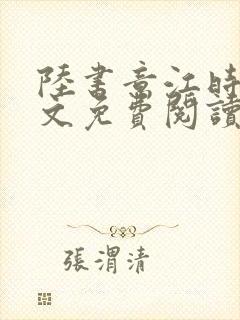 陸書章江時
文免費閱讀
張渭清